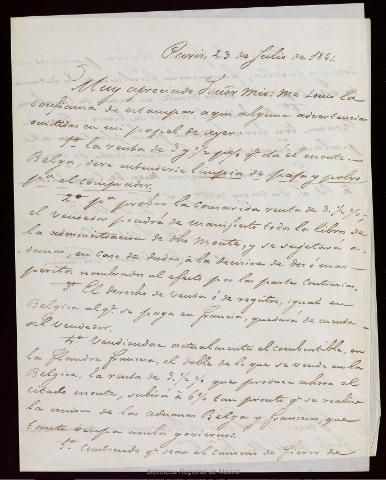 Paris, 23 de Julio de 1841.
Muy apreciado Señor Mio: me tomo la
confianza de estampar aquí algunas advertencias
omitidas en mi papel de ayer.
1ª la renta de 3 y ½ p% qe dá el monte
Belga, deve entenderse limpia de paja y polvo
pª el comprador.
2ª pª probar la consavida renta de 3. ½ %
el vendedor pondrá de manifiesto todos los libros de
la administracion de dho Monte, y se sujetará a-
demas, en caso de dudas, á la decision de dos ó mas
peritos nombrados al efecto por las partes contrarias.
3ª El derecho de ventas ó de registro, igual en
Belgica al qe se paga en francia, quedará de cuenta
del Vendedor.
4ª Vendiendose actualmente el combustible, en
la Flandre francesa, el doble de lo que se vende en la
Belgica, la renta de 3. ½ % que produce ahora el
citado monte, subirá á 6% tan pronto qe se realize
la union de las aduanas Belga y francesa que
tanto ocupa ambos goviernos.
5ª Convenido qe sea el camino de fierro de
Biblioteca Regional de Madrid